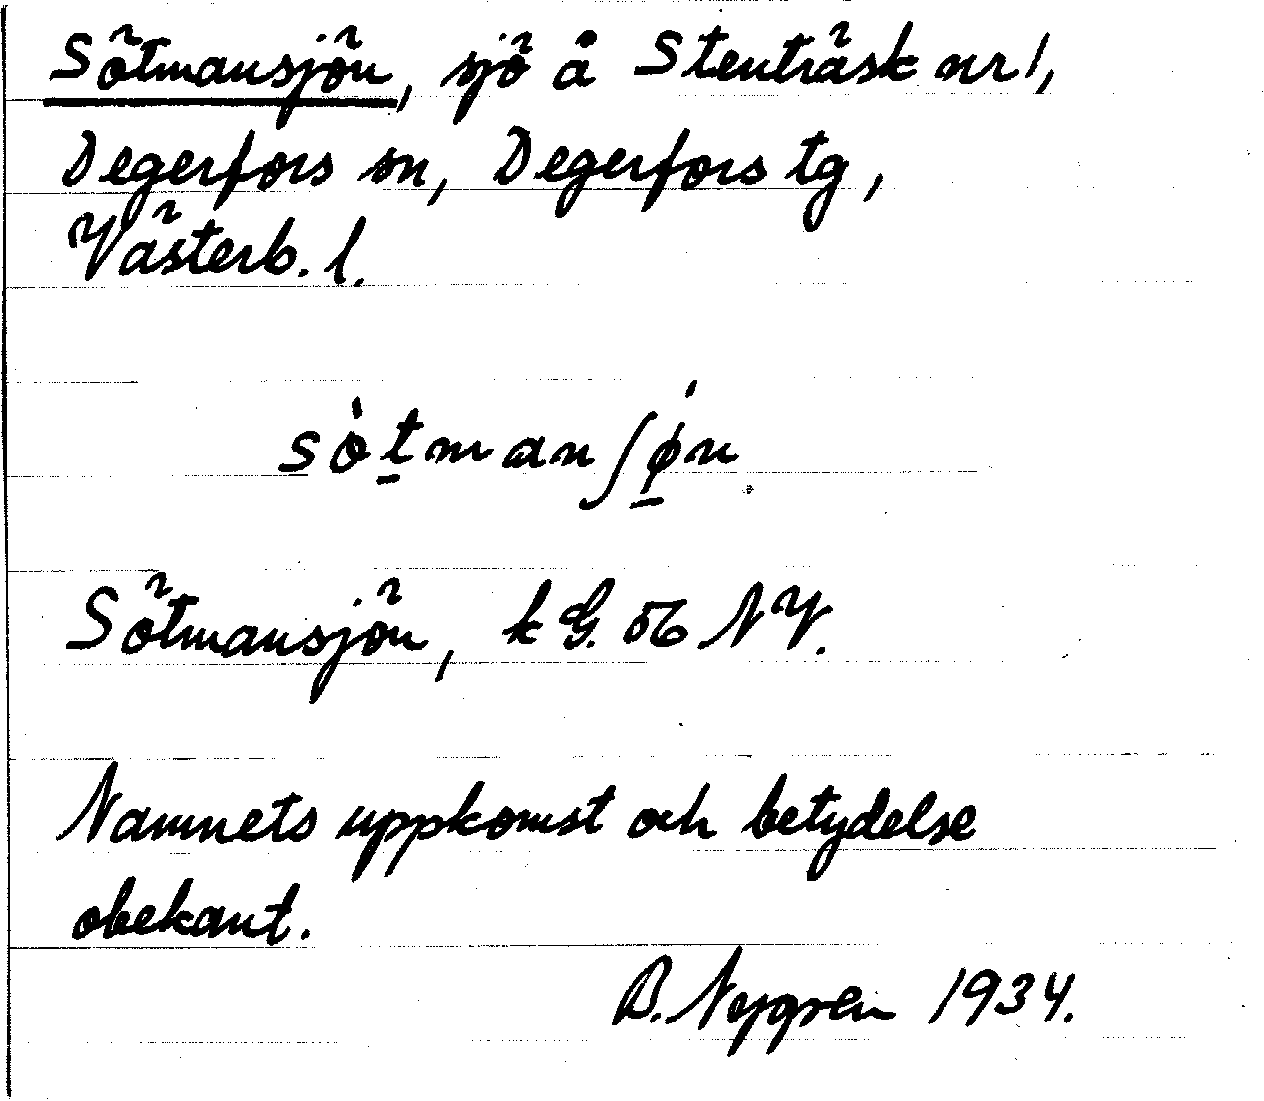 Sötmansjön, sjö å Stenträsk nr 1,
Degerfors sn, Degerfors tg,
Västerb. l.
sò̠tmanʃǿ̠n
Sötmansjön, k G. 56 NV.
Namnets uppkomst och betydelse
obekant.
B. Nygren 1934.